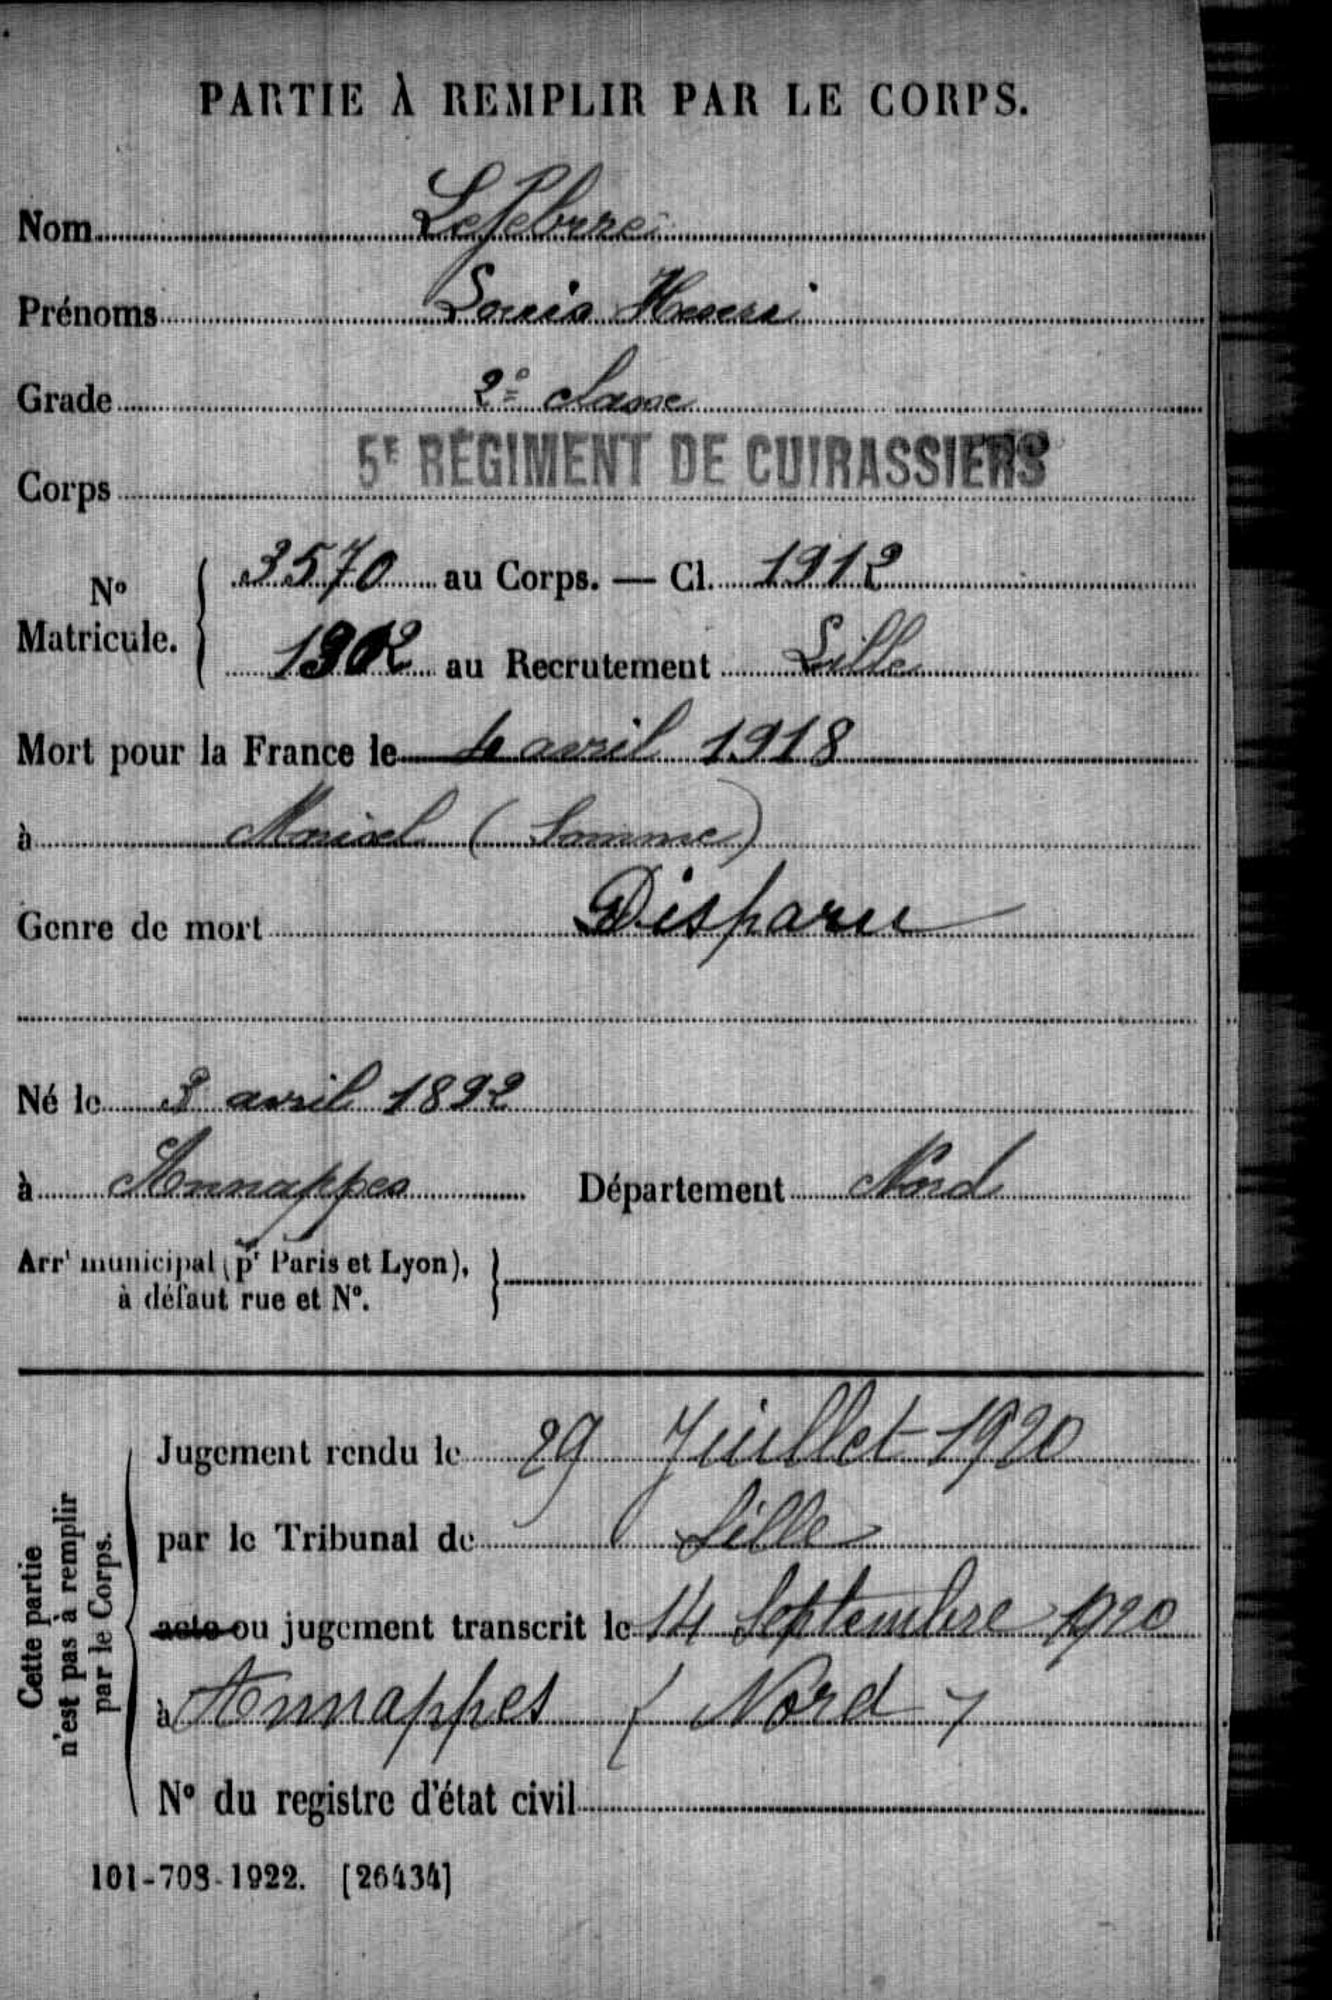 PARTIE À REMPLIR PAR LE CORPS.
Nom Lefebvre
Prénoms Louis Henri
Grade 2e classe
Corps 5E RÉGIMENT DE CUIRASSIERS
No Matricule. 3570 au Corps. — Cl. 1912
1902 au Recrutement Lille
Mort pour la France le 4 avril 1918
à Morisel (Somme)
Genre de mort Disparu
Né le 3 avril 1892
à Annappes Département Nord
Arrt municipal (pr Paris et Lyon),
à défaut rue et No.
Cette partie
n'est pas à remplir
par le Corps.
Jugement rendu le 29 Juillet 1920
par le Tribunal de Lille
acte ou jugement transcrit le 14 Septembre 1920
à Annappes (Nord)
No du registre d'état civil
101-708-1922. [26434]